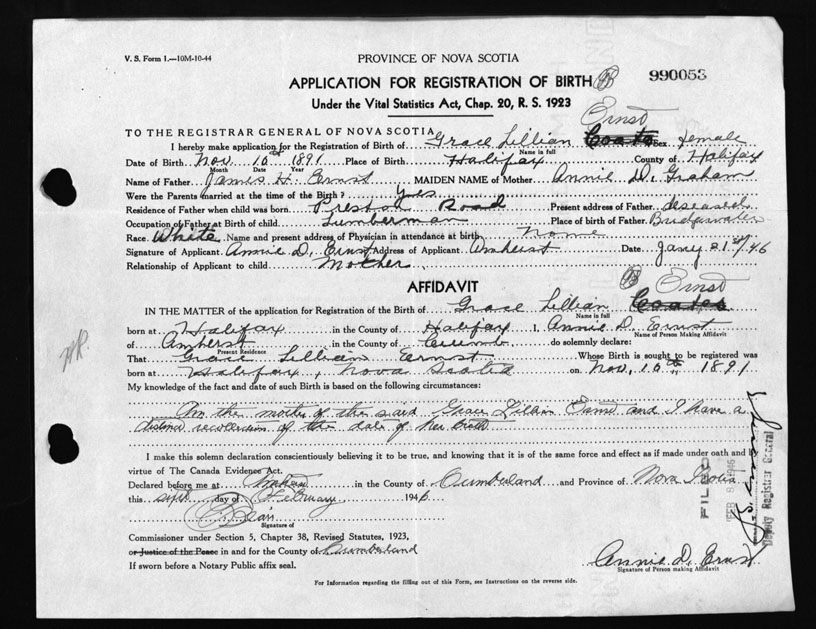 V. S. Form 1.—10M-10-44
PROVINCE OF NOVA SCOTIA
APPLICATION FOR REGISTRATION OF BIRTH 990053
Under the Vital Statistics Act, Chap. 20, R. S. 1923
Ernst
TO THE REGISTRAR GENERAL OF NOVA SCOTIA
I hereby make application for the Registration of Birth of Grace Lillian Coates Sex female
Name in full
Date of Birth Nov. 10th 1891 Place of Birth Halifax County of Halifax
Month Date Year
Name of Father James H. Ernst MAIDEN NAME of Mother Annie D. Graham
Were the Parents married at the time of the Birth? Yes
Residence of Father when child was born Preston Road Present address of Father deseased
Occupation of Father at Birth of child Lumberman Place of birth of Father Bridgewater
Race White Name and present address of Physician in attendance at birth None
Signature of Applicant Annie D. Ernst Address of Applicant Amherst Date Jany 21st/46
Relationship of Applicant to child Mother
AFFIDAVIT
Ernst
IN THE MATTER of the application for Registration of the Birth of Grace Lillian Coates
Name in full
born at Halifax in the County of Halifax I, Annie D. Ernst
Name of Person Making Affidavit
of Amherst in the County of Cumb do solemnly declare:
Present Residence
That Grace Lillian Ernst Whose Birth is sought to be registered was
born at Halifax, Nova Scotia on Nov. 10th 1891
My knowledge of the fact and date of such Birth is based on the following circumstances:
Am the mother of the said Grace Lillian Ernst and I have a
distinct recollection of the date of her birth
I make this solemn declaration conscientiously believing it to be true, and knowing that it is of the same force and effect as if made under oath and by
virtue of The Canada Evidence Act.
Declared before me at Amherst in the County of Cumberland and Province of Nova Scotia
this day of February 1946
Signature of
Commissioner under Section 5, Chapter 38, Revised Statutes, 1923,
or Justice of the Peace in and for the County of Cumberland
If sworn before a Notary Public affix seal.
Annie D. Ernst
Signature of Person making Affidavit
For Information regarding the filling out of this Form, see Instructions on the reverse side.
FILED
FEB 1946
Deputy Registrar General